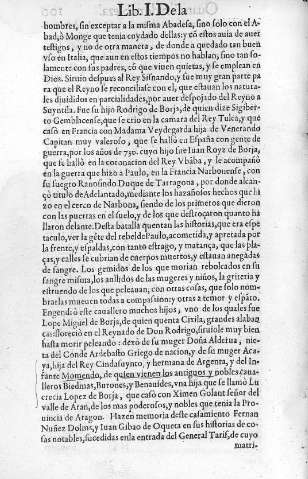 Lib. I. De la
hombres, sin exceptar a la misma Abadesa, sino solo con el A-
bad, ò Monge que tenia cuydado dellas; y cõ estos auia de auer
testigos, y no de otra manera, de donde a quedado tan buen
vso en España, que aun en estos tiempos no hablan, sino tan so-
lamente con sus padres, cõ que viuen quietas, y se emplean en
Dios. Siruio despues al Rey Sisnando, y fue muy gran parte pa
ra que el Reyno se reconciliase con el, que estauan los natura-
les diuididos en parcialidades, por auer despojado del Reyno a
Suyntila. Fue su hijo Rodrigo de Borja, de quien dize Sigiber-
to Gemblicense, que se crio en la camara del Rey Tulca, y que
casó en Francia con Madama Veydegarda hija de Venerando
Capitan muy valeroso, que se halló en España con gente de
guerra, por los años de 750. cuyo hijo fue Iuan Royz de Borja,
que se halló en la coronacion del Rey Vbãba, y le acompañó
en la guerra que hizo a Paulo, en la Francia Narbonense, con
su suegro Ranosindo Duque de Tarragona, por donde alcan-
çó titulo de Adelantado, mediante los hazañosos hechos que hi
zo en el cerco de Narbona, siendo de los primeros que dieron
con las puertas en el suelo, y de los que destroçaron quanto ha
llaron delante. Desta batalla quentan las historias, que era espe
taculo, ver la gẽte del rebel de Paulo, acometida, y apretada por
la frente, y espaldas, con tanto estrago, y matança, que las pla-
ças, y calles se cubrian de cuerpos muertos, y estauan anegadas
de sangre. Los gemidos de los que morian rebolcados en su
sangre misma, los aullidos de las mugeres y niños, la griteria y
estruendo de los que peleauan, con otras cosas, que solo nom-
brarlas mueuen todas a compasion y otras a temor y espãto.
Engendró este cauallero muchos hijos, vno de los quales fue
Lope Miguel de Borja, de quien quenta Civila, grandes alaban
ças florecio en el Reynado de Don Rodrigo, siruiole muy bien
hasta morir peleando: dexó de su muger Doña Aldeiua, nie-
ta del Conde Ardebasto Griego de nacion, y de su muger Ara-
ya, hija del Rey Cindasuynto, y hermana de Argenta, y del In-
fante Momendo, de quien vienen los antiguos y nobles caua-
lleros Biedmas, Butones, y Benauides, vna hija que se llamó Lu
crecia Lopez de Borja, que casó con Ximen Golant señor del
valle de Aran, de los mas poderosos, y nobles que tenia la Pro
uincia de Aragon. Hazen memoria deste casamiento Fernan
Nuñez Dolms, y Iuan Gibao de Oqueta en sus historias de co-
sas notables, sucedidas en la entrada del General Tarif, de cuyo
matri-